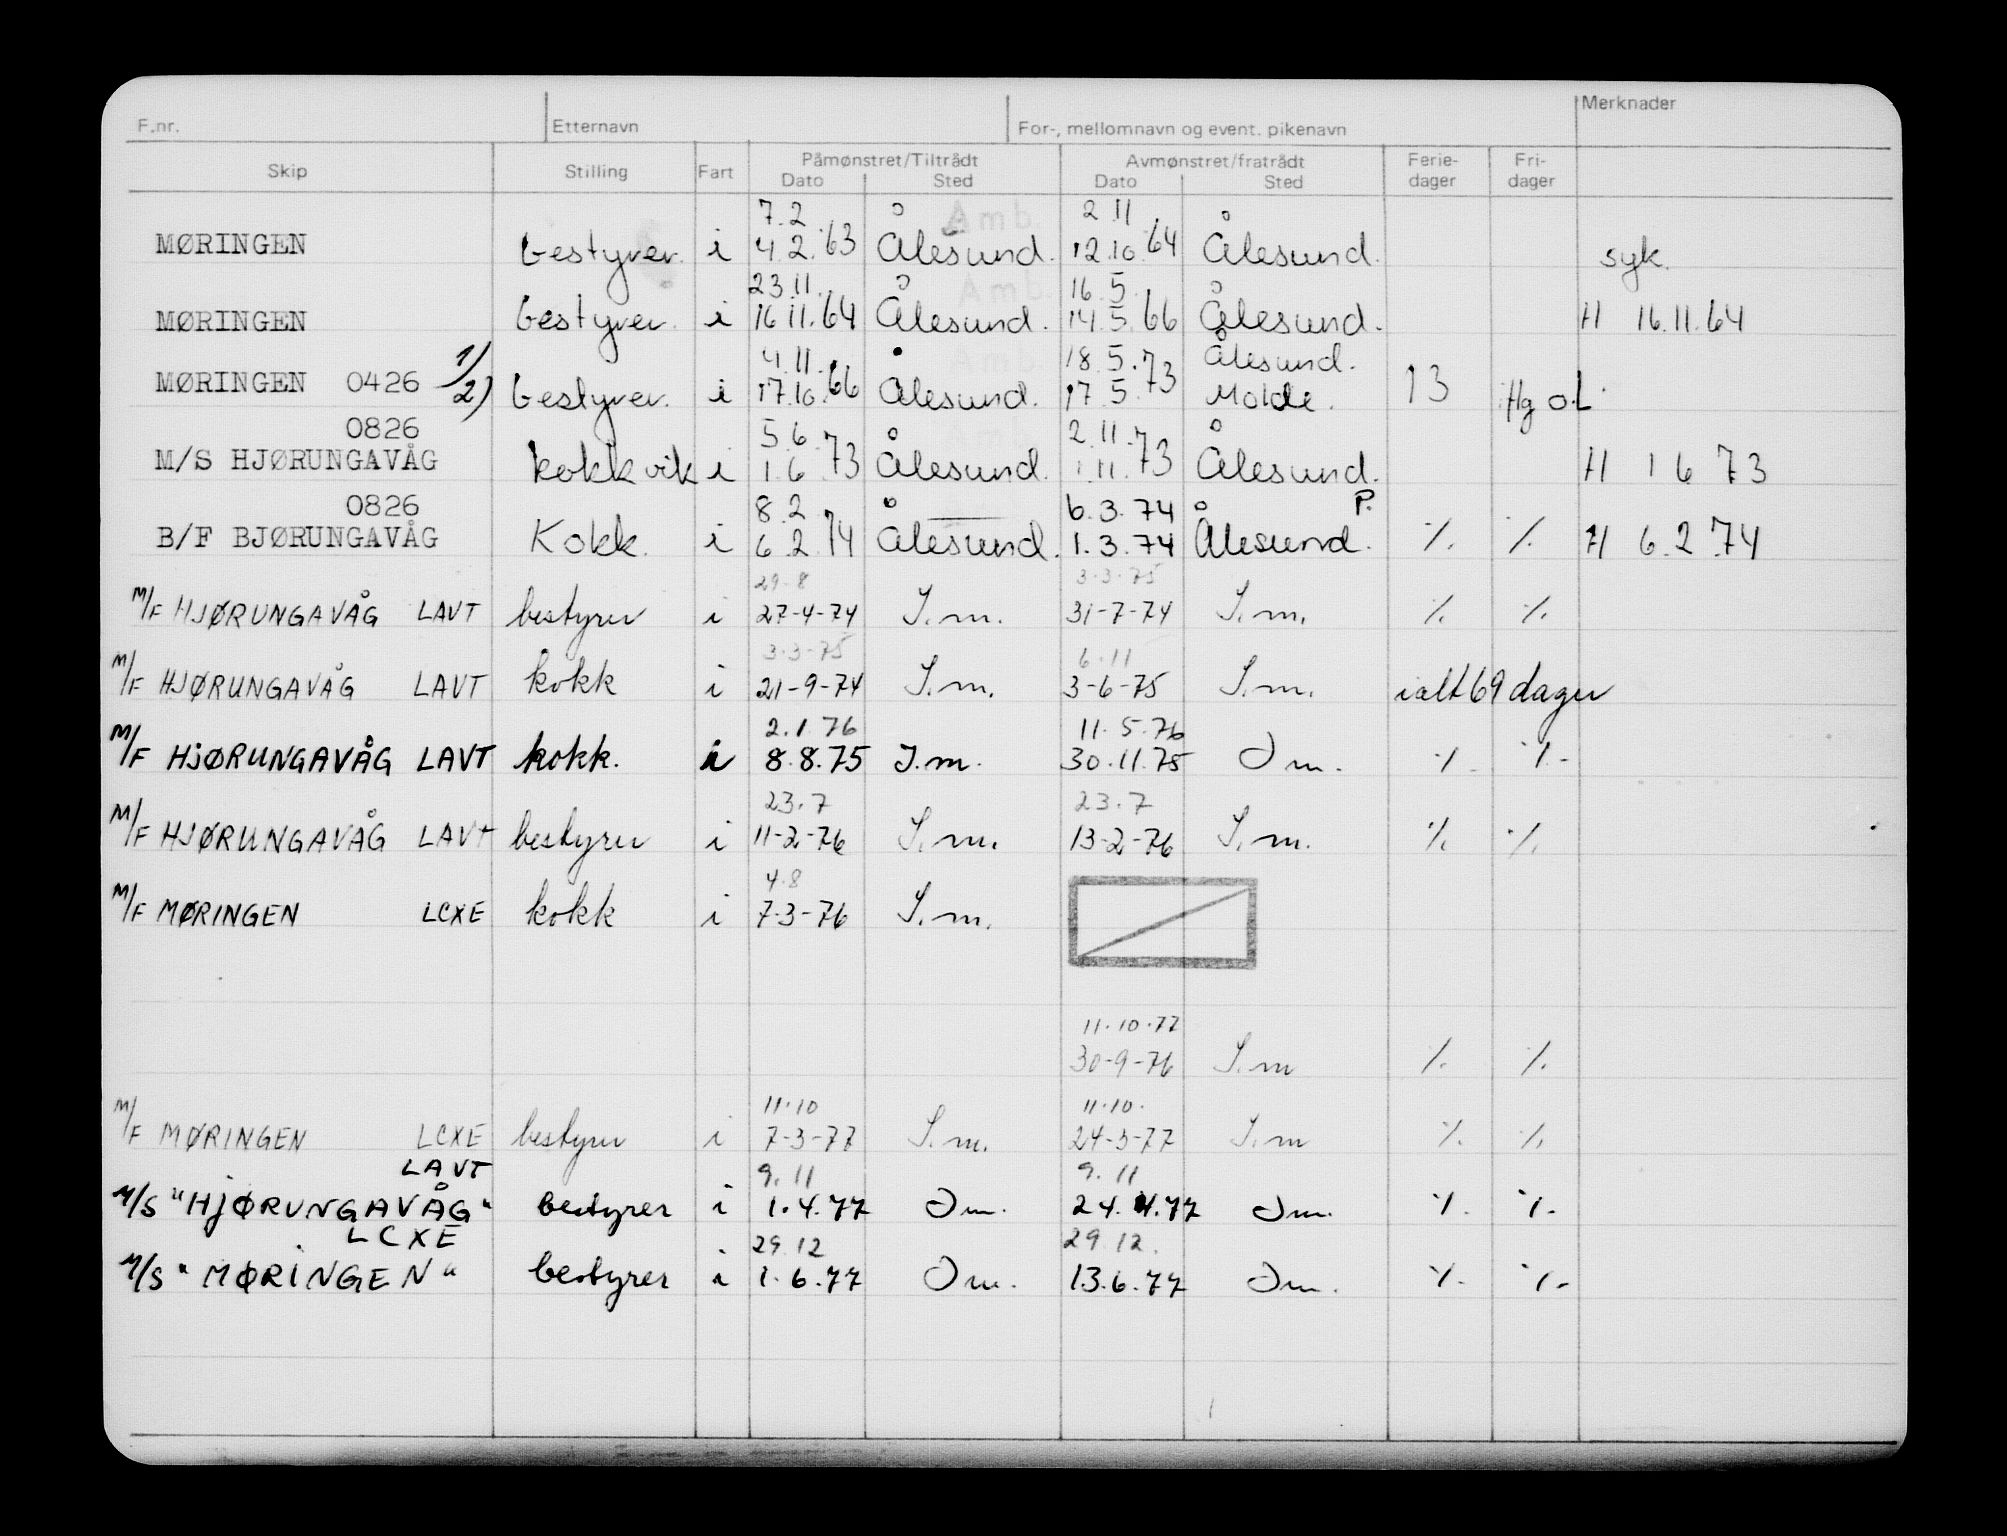 F.nr. Etternavn For-, mellomnavn og event. pikenavn Merknader
Skip Stilling Fart Påmønstret/Tiltrådt Avmønstret/fratrådt Ferie- Fri-
Dato Sted Dato Sted dager dager
7.2 Amb. 2 11
MØRINGEN bestyrer. i 4.2.63 Ålesund. 12.10.64 Ålesund. syk.
23.11. Amb. 16.5.
MØRINGEN bestyrer. i 16 11.64 Ålesund. 14.5.66 Ålesund. H 16.11.64
1/ 4.11. Amb. 18.5.73 Ålesund.
MØRINGEN 0426 2) bestyrer. i 17.10.66 Ålesund. 17.5.73 Molde. 13 Hg o.L.
0826 5.6. 2.11.
M/S HJØRUNGAVÅG kokk vik i 1.6.73 Ålesund. 1.11.73 Ålesund. H 1 6 73
0826 8.2 6.3.74 P.
B/F BJØRUNGAVÅG Kokk. i 6.2.74 Ålesund. 1.3.74 Ålesund. ./. ./. H 6.2.74
29.8 3.3.75
M/F HJØRUNGAVÅG LAVT bestyrer i 27-4-74 S.m. 31-7-74 S.m. ./. ./.
3.3-75 6.11
M/F HJØRUNGAVÅG LAVT kokk i 21-9-74 S.m. 3-6-75 S.m. ialt 69 dager
2.1.76 11.5.76
M/F HJØRUNGAVÅG LAVT kokk. i 8.8.75 S.m. 30.11.75 Sm. ./. ./.
23.7 23.7
M/F HJØRUNGAVÅG LAVT bestyrer i 11-2-76 S.m. 13-2-76 S.m. ./. ./.
4.8
M/F MØRINGEN LCXE kokk i 7-3-76 S.m.
11.10.77
30-9-76 S.m ./. ./.
11.10 11.10.
M/F MØRINGEN LCXE bestyrer i 7-3-77 S.m. 24-3-77 S.m ./. ./.
LAVT 9.11 9.11
M/S "HJØRUNGAVÅG" bestyrer i 1.4.77 Sm. 24.4.77 Sm. ./. ./.
LCXE 29.12 29.12.
M/S "MØRINGEN" bestyrer i 1.6.77 Sm. 13.6.77 Sm. ./. ./.